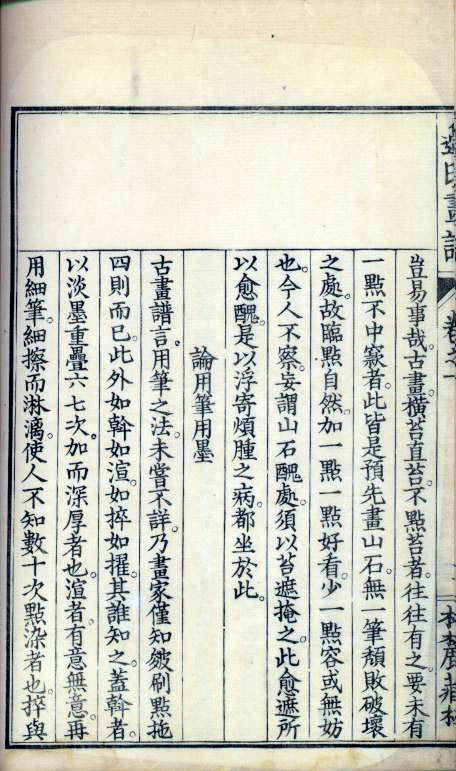 畫譜
卷之一
豈易事哉。古畫橫苔直苔。不點苔者。往往有之。要未有
一點不中竅者。此皆是預先畫山石。無一筆頹敗破壞
之處。故臨點自然。加一點一點好看。少一點容或無妨
也。今人不察。妄謂山石醜處。須以苔遮掩之。此愈遮所
以愈醜。是以浮寄煩腫之病。都坐於此。
論用筆用墨
古畫譜言。用筆之法。未嘗不詳。乃畫家僅知皴刷點拖
四則而已。此外如斡如渲。如捽如擢。其誰知之。蓋斡者。
以淡墨重疊六七次。加而深厚者也。渲者。有意無意。再
用細筆。細擦而淋漓。使人不知數十次點染者也。捽與